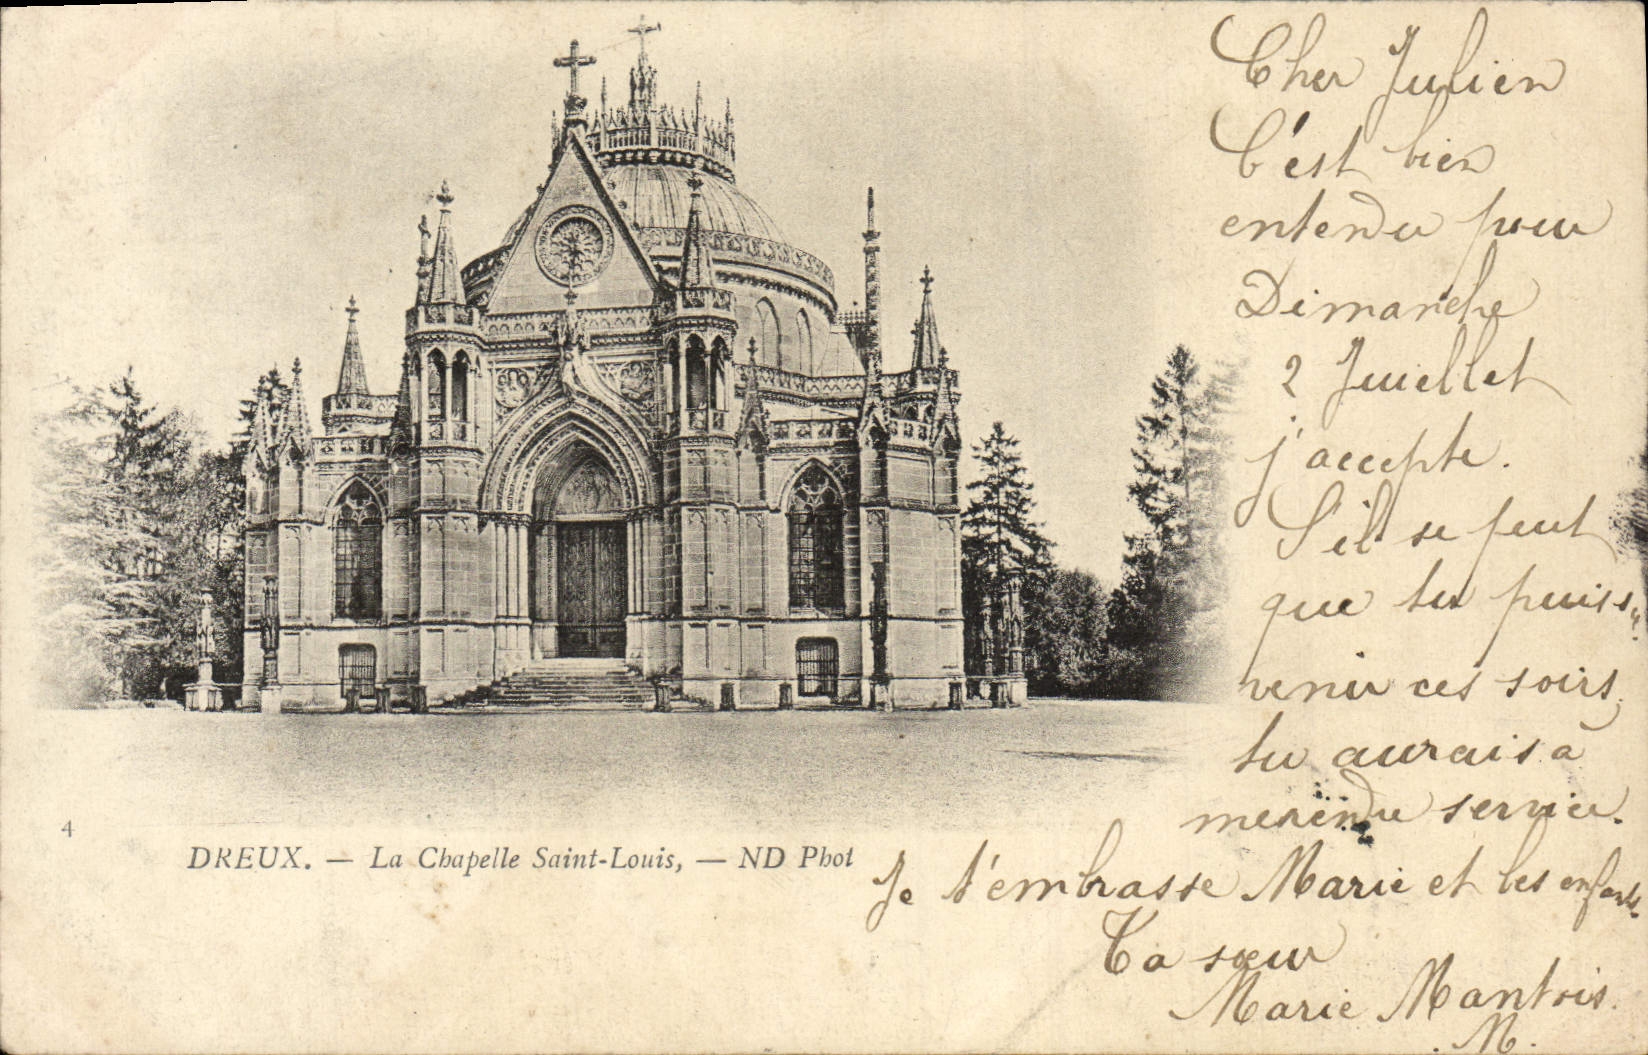 Cher Julien
C'est bien
entendu pour
Dimanche
2 Juiellet
j'accepte.
S'il se peut
que tu puisse
venir ces soirs,
tu aurais à
me rendre service.
Je t'embrasse Marie et les enfants.
Ta sœur
Marie Mantois.
M.
4
DREUX. — La Chapelle Saint-Louis, — ND Phot